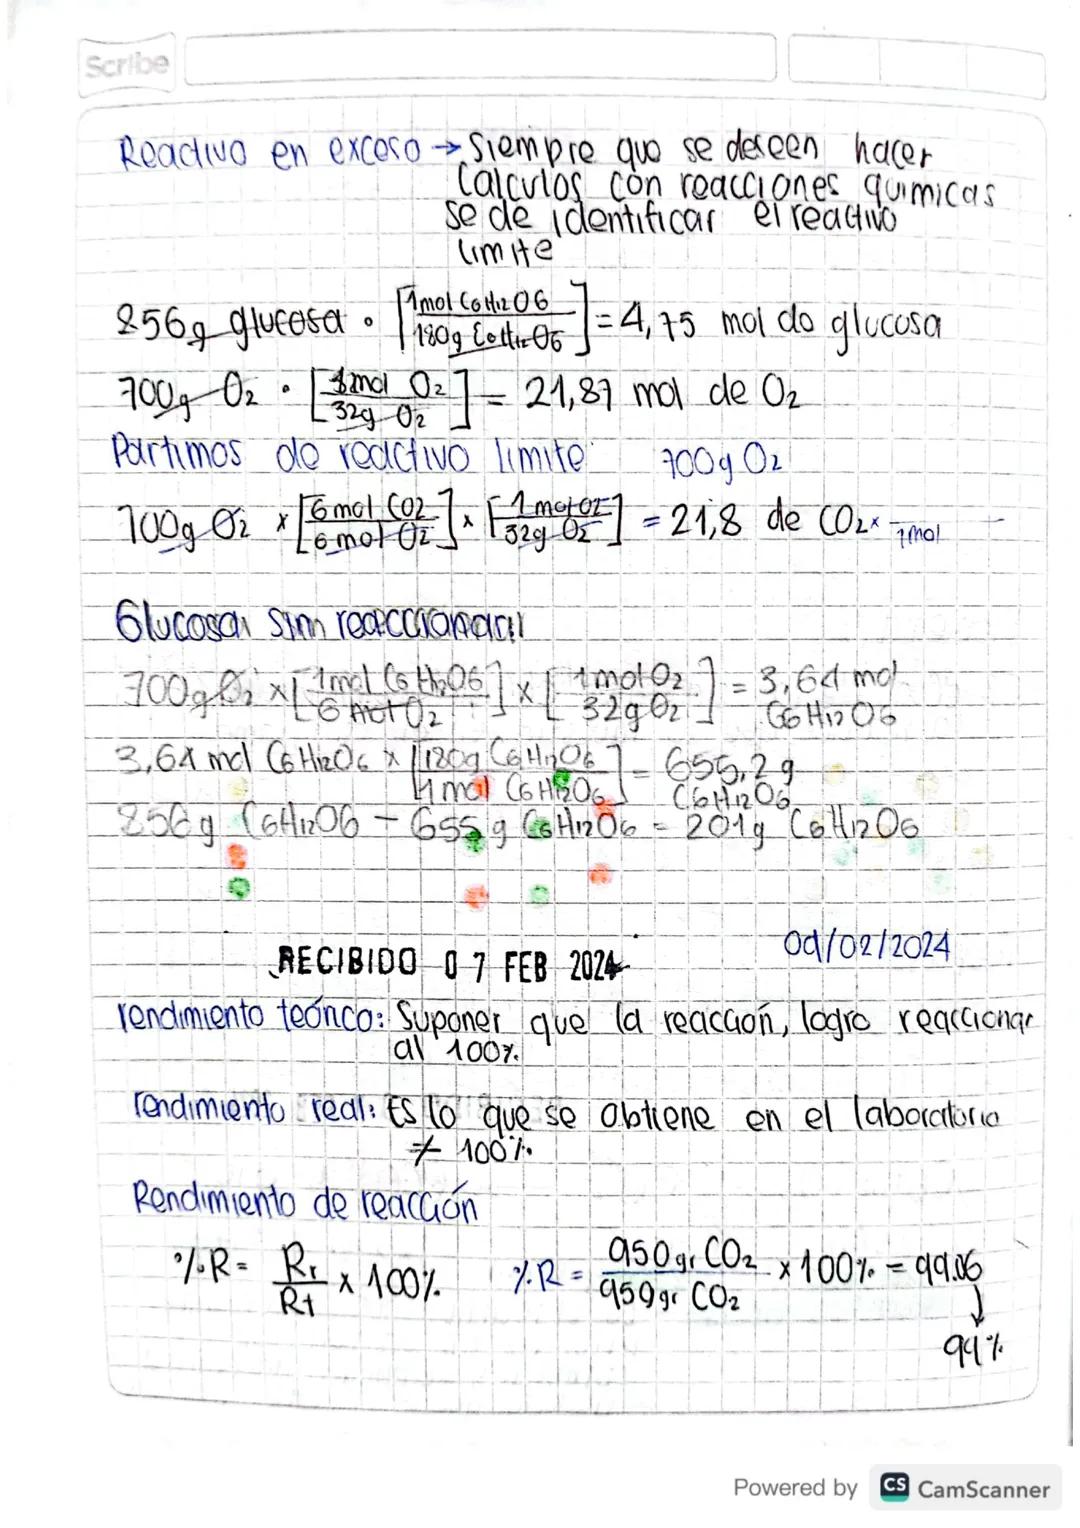 Scribe
Reactivo en exceso → Siempre que se deseen hacer
Calculos con reacciones quimicas
se de identificar el reactivo
limite
856g glucosa · [1mol C6H12O6 / 180g C6H12O6] = 4,75 mol do glucosa
700g O2 · [1mol O2 / 32g O2] = 21,87 mol de O2
Partimos de reactivo limite: 700g O2
700g O2 x [6 mol CO2 / 6 mol O2] x [1 mol O2 / 32g O2] = 21,8 de CO2 x / 1mol
Glucosa sin reaccionar
700g O2 x [1mol C6H12O6 / 6 mol O2] x [1mol O2 / 32g O2] = 3,64 mol C6H12O6
3,64 mol C6H12O6 x [180g C6H12O6 / 1 mol C6H12O6] = 655,2g C6H12O6
856g C6H12O6 - 655g C6H12O6 = 201g C6H12O6
RECIBIDO 07 FEB 2024
09/02/2024
rendimiento teórico: Suponer que la reacción, logro reaccionar
al 100%.
rendimiento real: Es lo que se obtiene en el laboratorio
≠ 100%.
Rendimiento de reacción
%R = Rr / Rt x 100% %R = 950gr CO2 / 959gr CO2 x 100% = 99.06
↓
99%
Powered by CS CamScanner